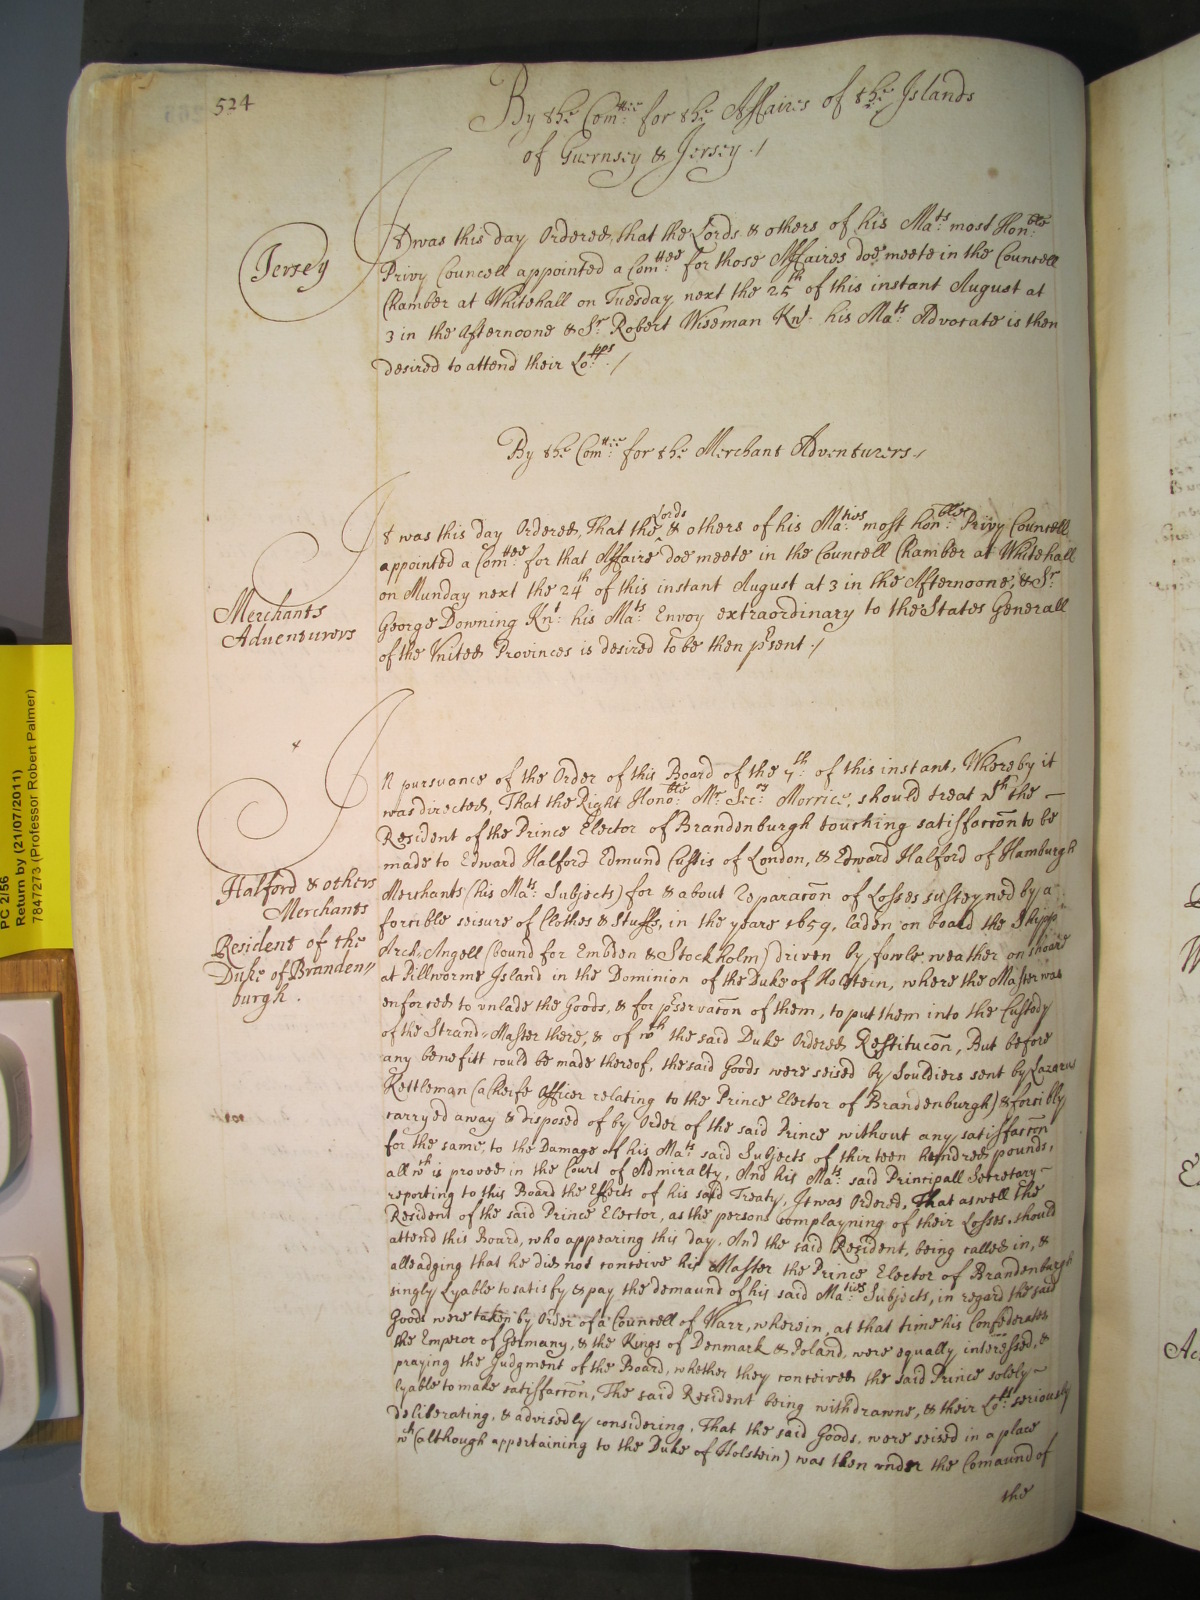 524
By the Com:ttee for the Affaires of the Islands
of Guernsey & Jersey ./
Jersey
It was this day Ordered, that the Lords & others of his Ma:ts most Hon:ble
Privy Councell appointed a Com:ttee for those Affaires doe meete in the Councell
Chamber at Whitehall on Tuesday next the 25th of this instant August at
3 in the Afternoone & Sr. Robert Wiseman Knt. his Ma:ts Advocate is then
desired to attend their Lo:pps ./
By the Com:ttee for the Merchant Adventurers./
Merchants
Adventurers
It was this day Ordered, That the Lords & others of his Ma:ties most hon:ble Privy Councell
appointed a Com:ttee for that Affaire doe meete in the Councell Chamber at Whitehall
on Munday next the 24th of this instant August at 3 in the Afternoone, & Sr.
George Downing Knt: his Ma:ts Envoy extraordinary to the States Generall
of the Vnited Provinces is desired to be then p̱sent ./
Halford & others
Merchants
Resident of the
Duke of Branden//
burgh.
IN pursuance of the Order of this Board of the 7th: of this instant, Whereby it
was directed, That the Right Hono:ble Mr. Sec:ry Morrice, should treat wth the —
Resident of the Prince Elector of Brandenburgh touching satisfaccon̄ to be
made to Edward Halford Edmund Custis of London, & Edward Halford of Hamburgh
Merchants (his Ma:ts Subjects) for & about Reparacōn of Losses susteyned by a
forcible seisure of Clothes & Stuffs, in the yeare 1659, laden on board the Shipp
Arch-Angell (bound for Embden & Stockholm) driven by fowle weather on shoare
at Pillworme Island in the Dominion of the Duke of Holstein, where the Master was
enforced to vnlade the Goods, & for p̱servacōn of them, to put them into the Custody
of the Strand-Master there, & of wch the said Duke Ordered Restitucōn, But before
any benefitt could be made thereof, the said Goods were seised by Souldiers sent by Lazarus
Kettleman (a cheife Officer relating to the Prince Elector of Brandenburgh) & forcibly
carryed away & disposed of by Order of the said Prince without any satisfaccōn
for the same, to the Damage of his Ma:ts said Subjects of thirteen hundred pounds,
all wch is proved in the Court of Admiralty, And his Ma:ts said Principall Secretary —
reporting to this Board the Effects of his said Treaty, It was Ordered, That aswell the
Resident of the said Prince Elector, as the persons complayning of their Losses, should
attend this Board, who appearing this day, And the said Resident, being called in, &
alleadging that he did not conceive his Master the Prince Elector of Brandenburgh
singly lyable to satisfy & pay the demaund of his said Ma:ties Subjects, in regard the said
Goods were taken by Order of a Councell of Warr, wherein, at that time his Confederates
the Emperor of Germany, & the Kings of Denmark & Poland, were equally interessed, &
praying the Judgment of the Board, whether they conceived the said Prince solely —
lyable to make satisfaccōn, The said Resident being withdrawne, & their Lo:pps seriously
deliberating, & advisedly considering, That the said Goods, were seised in a place
wch (although appertaining to the Duke of Holstein) was then vnder the Comaund of
the
PC 2/56
Return by (21/07/2011)
7847273 (Professor Robert Palmer)